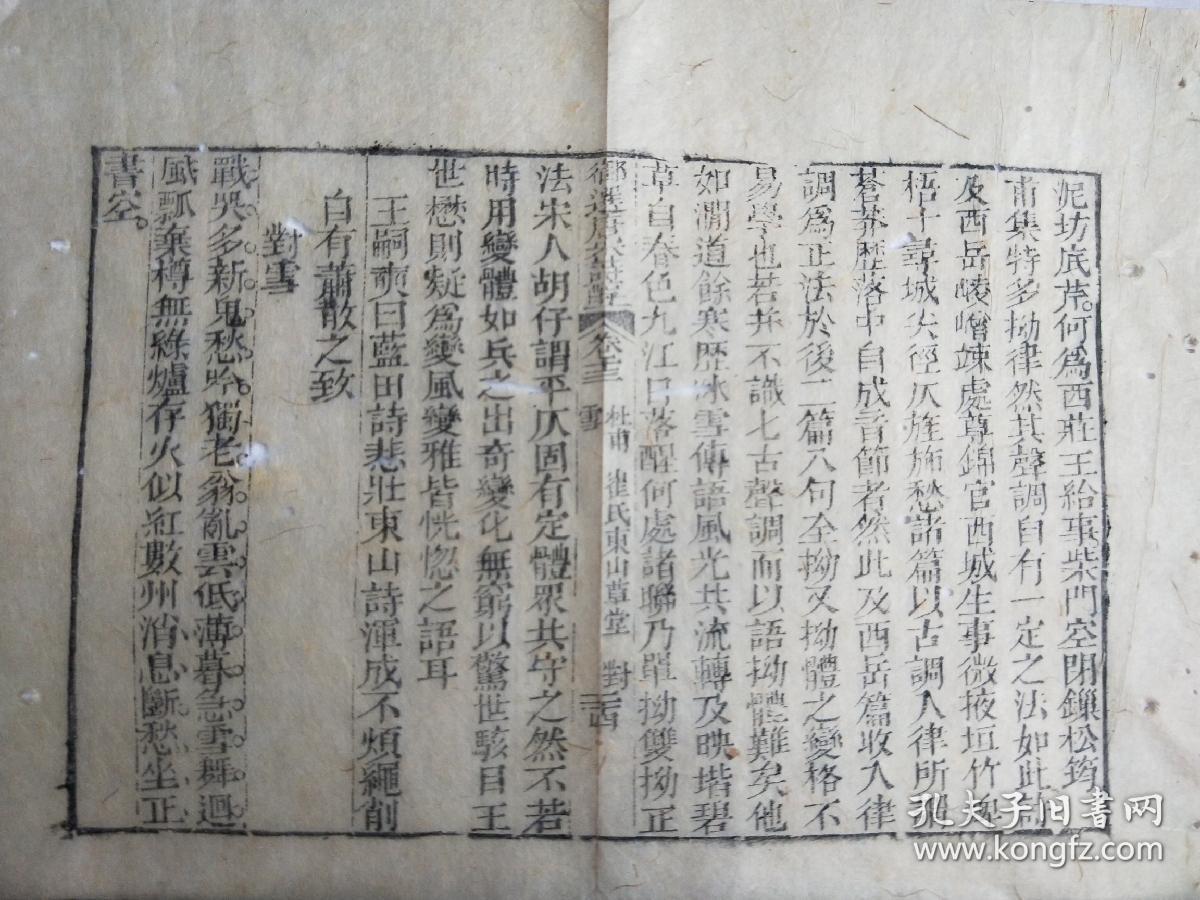 泥坊底芹。何爲西莊王給事柴門空閉鏁松筠
甫集特多拗律然其聲調自有一定之法如此
及西岳崚嶒竦處尊錦官西城生事微掖垣竹埤
梧十尋城尖徑仄旌旆愁諸篇以古調入律所
蒼莽歷落中自成音節者然此及西岳篇收入律
調爲正法於後二篇八句全拗又拗體之變格不
易學也若并不識七古聲調而以語拗體難矣他
如澗道餘寒歷冰雪傳語風光共流轉及映堦碧
草自春色九江日落醒何處諸聯乃單拗雙拗正
御選唐宋詩醇 卷十三 杜甫 崔氏東山草堂 對雪
法宋人胡仔謂平仄固有定體眾共守之然不若
時用變體如兵之出奇變化無窮以驚世駭目王
世懋則疑爲變風變雅皆恍惚之語耳
王嗣奭曰藍田詩悲壯東山詩渾成不煩繩削
自有蕭散之致
對雪
戰哭多新鬼愁吟獨老翁亂雲低薄暮急雪舞迴
風瓢棄樽無綠爐存火似紅數州消息斷愁坐正
書空。
孔夫子旧书网
www.kongfz.com